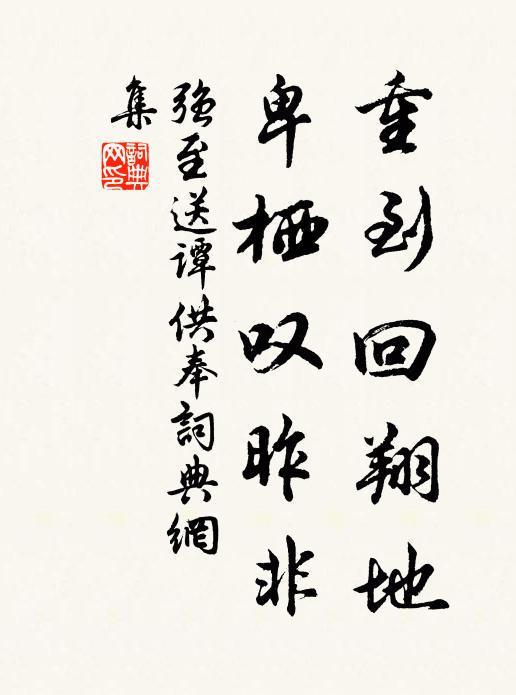 重到回翔地
卑栖叹昨非
强至送谭供奉詞典網
集
詞典
网印